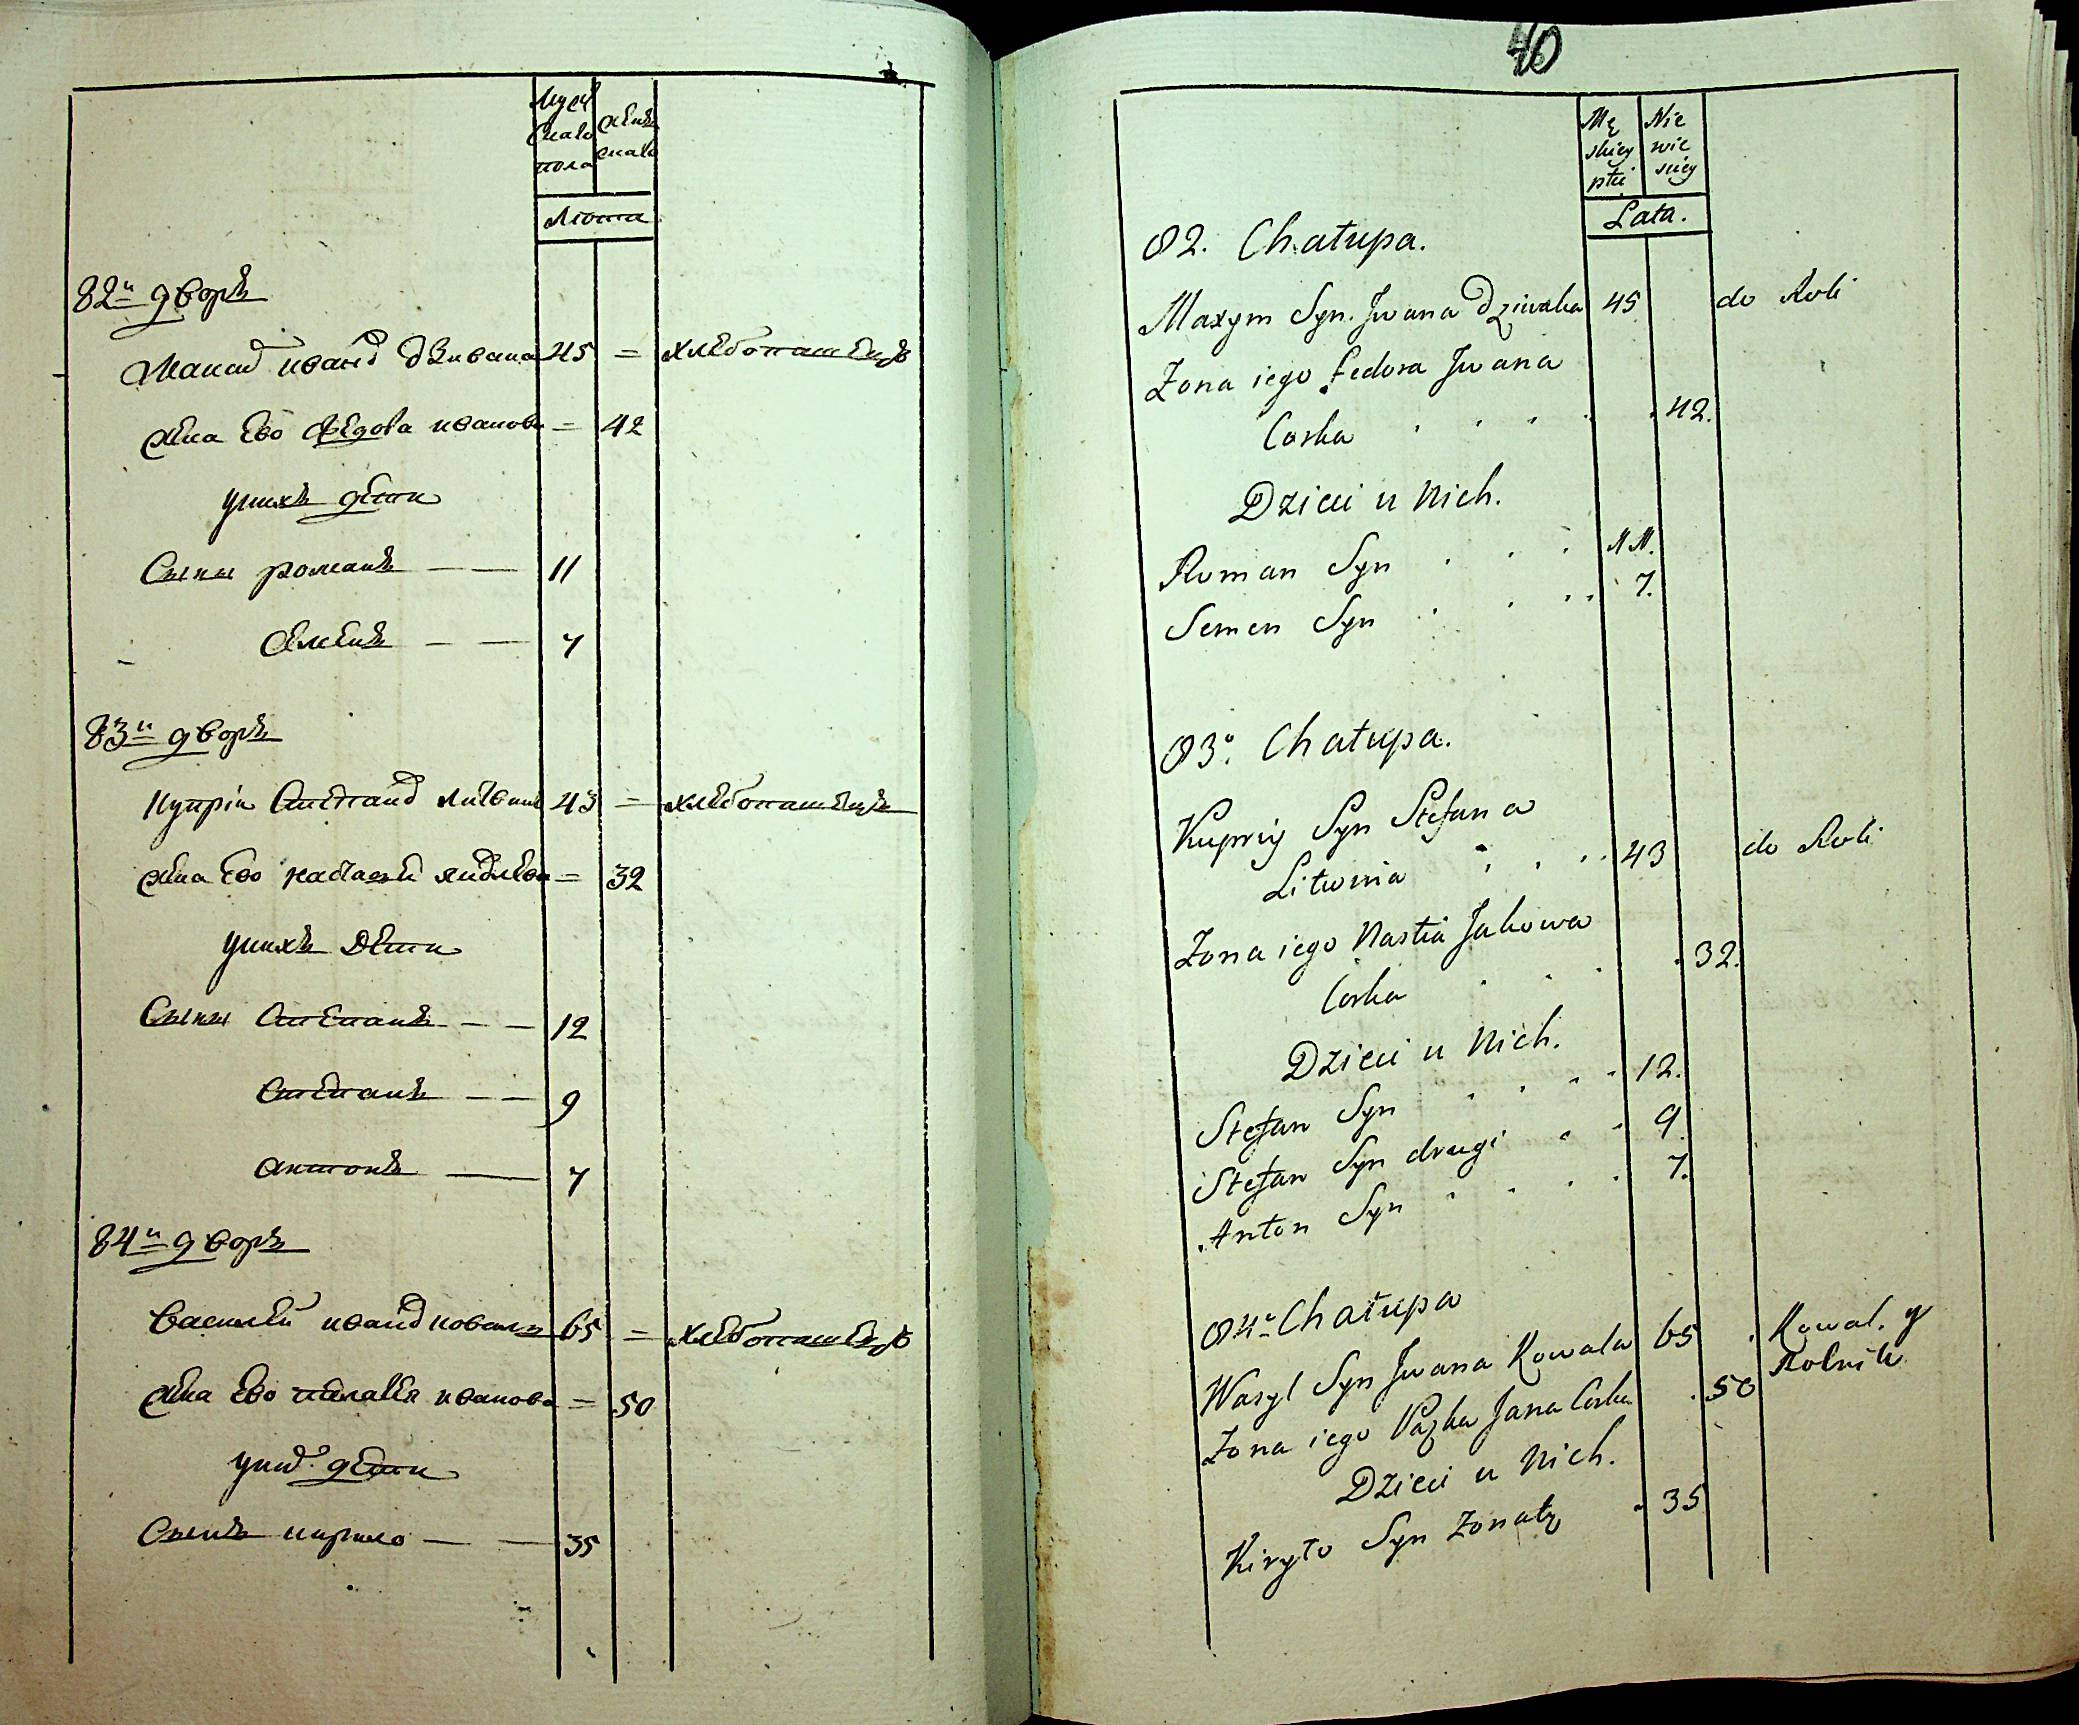 Муж
скаго
пола
женс
скаго
Лѣта
82й дворъ
Максим иванов дзивака 45 = хлебопашецъ
жена ево федора иванова = 42
у нихъ дети
Сыны романъ — — 11
— — 7
83й дворъ
Куприй Степанов литвин 43 = хлебопашецъ
жена ево настасья = 32
у нихъ дети
Сыны Степанъ — — 12
Степанъ — — 9
антонъ — 7
84й дворъ
василей иванов коваль 65 = хлебопашецъ
жена ево пелагея иванова = 50
у них дети
Сынъ кирило — — 35
40
Mę
skiey
płci
Nie
wie
sciey
Lata.
82. Chałupa.
Maxym Syn Jwana Dziwaka 45 do Roli
Zona iego Fedora Jwana
Corka 42.
Dzieci u Nich.
Roman Syn 11.
Semen Syn 7.
83. Chałupa.
Kupriy Syn Stefana
Litwina 43 do Roli
Zona iego Nastia Jakowa
Corka 32.
Dzieci u Nich.
Stefan Syn 12.
Stefan Syn drugi 9.
Anton Syn 7.
84. Chałupa
Wasyl Syn Jwana Kowala 65 Kowal. y
Rolnik
Zona iego Pazka Jana Corka 50
Dzieci u Nich.
Kiryło Syn Zonaty 35